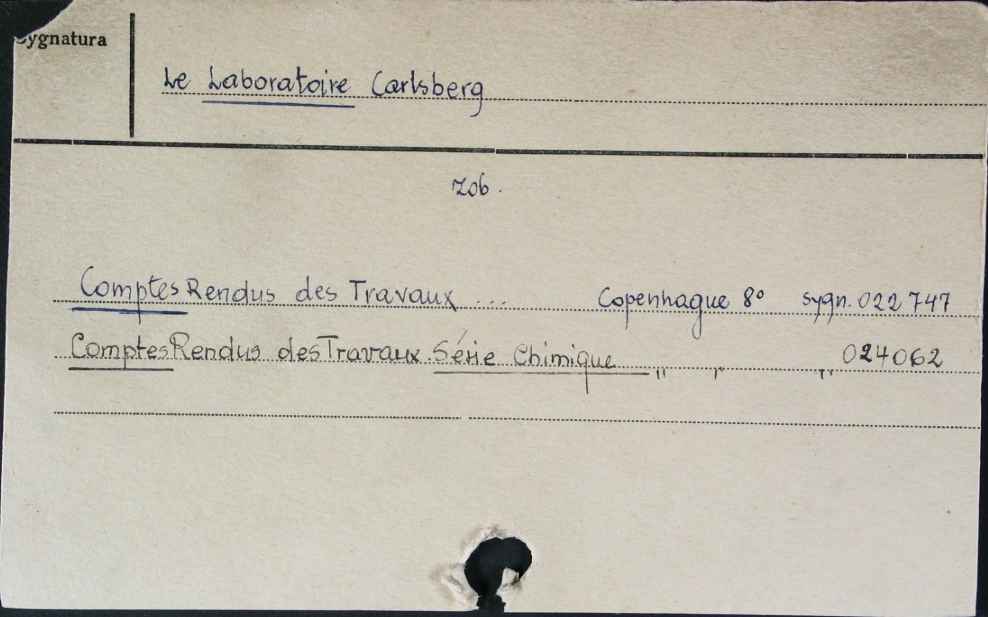 Sygnatura
Le Laboratoire Carlsberg
Zob.
Comptes Rendus des Travaux ... Copenhague 8° sygn. 022 747
Comptes Rendus des Travaux. Série Chimique " " " 024062